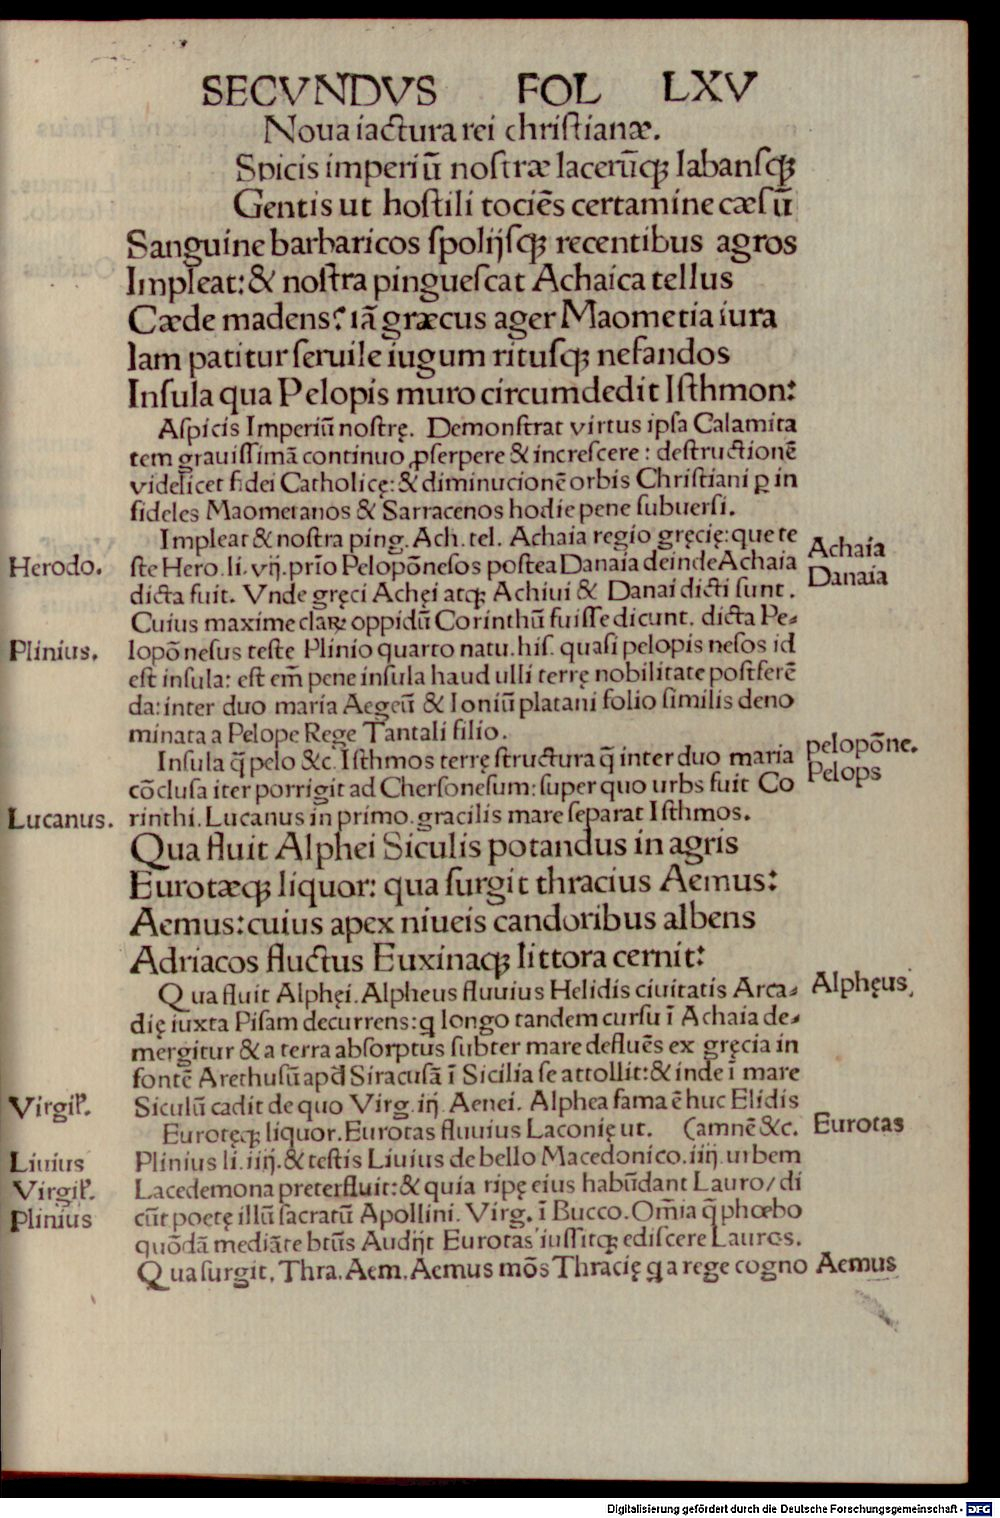 SECVNDVS FOL LXV
Noua iactura rei christianæ.
Spicis imperiū nostræ lacerūq; labansq;
Gentis ut hostili tociēs certamine cæsū
Sanguine barbaricos spolijsq; recentibus agros
Impleat: & nostra pinguescat Achaica tellus
Cæde madens? iā græcus ager Maometia iura
Iam patitur seruile iugum ritusq; nefandos
Insula qua Pelopis muro circumdedit Isthmon:
Aspicis Imperiū nostrę. Demonstrat virtus ipsa Calamita
tem grauissimā continuo ꝓserpere & increscere: destructionē
videlicet fidei Catholicę: & diminucionē orbis Christiani ꝑ in
fideles Maometanos & Sarracenos hodie pene subuersi.
Impleat & nostra ping. Ach. tel. Achaia regio gręcię: que te
Achaia
Herodo. ste Hero. li. vij. prīo Pelopōnesos postea Danaia deinde Achaia
Danaia
dicta fuit. Vnde gręci Achęi atq; Achiui & Danai dicti sunt.
Cuius maxime claꝝ oppidū Corinthū fuisse dicunt. dicta Pe-
Plinius. lopōnesus teste Plinio quarto natu. his. quasi pelopis nesos id
est insula: est em̄ pene insula haud ulli terrę nobilitate postferē
da: inter duo maria Aegeū & Ioniū platani folio similis deno
minata a Pelope Rege Tantali filio.
Insula q̄ pelo &c. Isthmos terrę structura q̄ inter duo maria pelopōne.
cōclusa iter porrigit ad Chersonesum: super quo urbs fuit Co Pelops
Lucanus. rinthi. Lucanus in primo. gracilis mare separat Isthmos.
Qua fluit Alphei Siculis potandus in agris
Eurotæq; liquor: qua surgit thracius Aemus:
Aemus: cuius apex niueis candoribus albens
Adriacos fluctus Euxinaq; littora cernit:
Qua fluit Alphęi. Alpheus fluuius Helidis ciuitatis Arca- Alphęus.
dię iuxta Pisam decurrens: q longo tandem cursu ī Achaia de-
mergitur & a terra absorptus subter mare defluēs ex gręcia in
fontē Arethusū apđ Siracusā ī Sicilia se attollit: & inde ī mare
Virgiľ. Siculū cadit de quo Virg. iij. Aenei. Alphea fama ē huc Elidis
Eurotęq; liquor. Eurotas fluuius Laconię ut. (amnē &c. Eurotas
Liuius Plinius li. iiij. & testis Liuius de bello Macedonico. iiij. urbem
Virgiľ. Lacedemona preterfluit: & quia ripę eius habūdant Lauro/ di
Plinius cūt poetę illū sacratū Apollini. Virg. ī Bucco. Om̄ia q̄ phœbo
quōdā mediāte btūs Audijt Eurotas iussitq; ediscere Lauros.
Qua surgit. Thra. Aem. Aemus mōs Thracię q a rege cogno Aemus
Digitalisierung gefördert durch die Deutsche Forschungsgemeinschaft - DFG